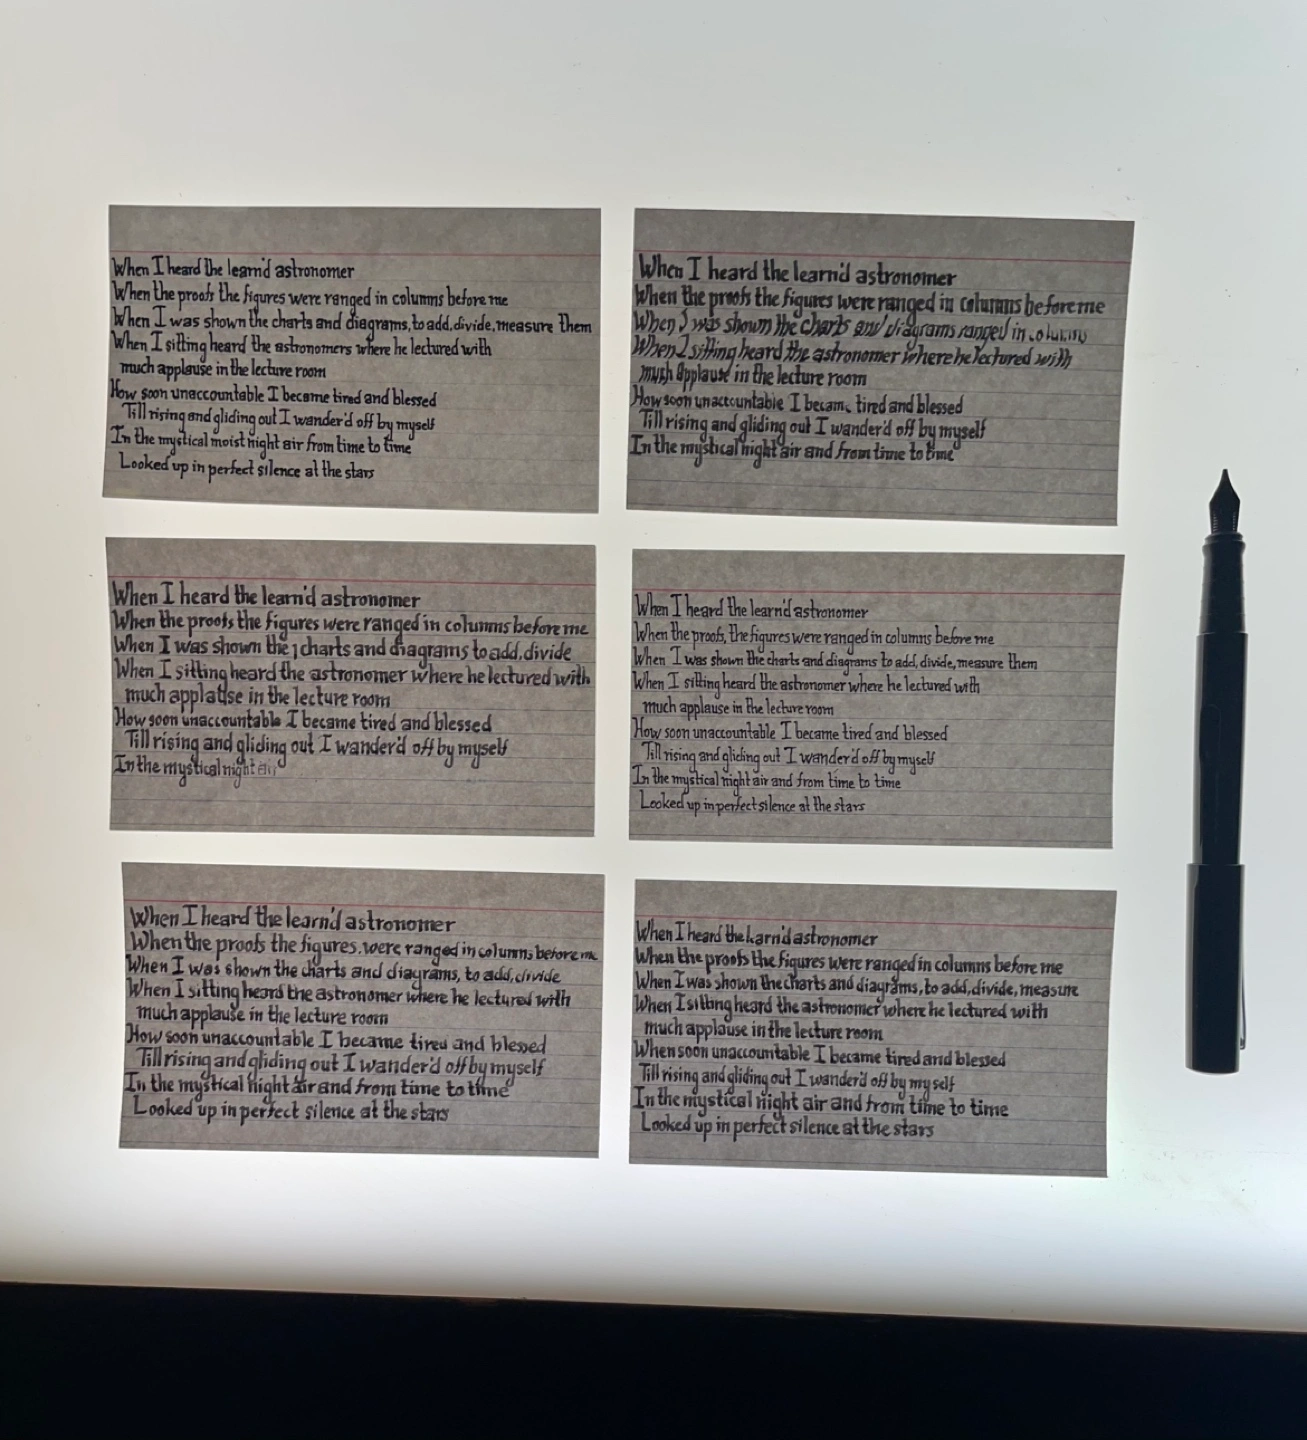 When I heard the learn'd astronomer
When the proofs the figures were ranged in columns before me
When I was shown the charts and diagrams, to add, divide, measure them
When I sitting heard the astronomers where he lectured with
much applause in the lecture room
How soon unaccountable I became tired and blessed
Till rising and gliding out I wander'd off by myself
In the mystical moist night air from time to time
Looked up in perfect silence at the stars
When I heard the learn'd astronomer
When the proofs the figures were ranged in columns before me
When I was shown the charts and diagrams ranged in columns
When I sitting heard the astronomer where he lectured with
much applause in the lecture room
How soon unaccountable I became tired and blessed
Till rising and gliding out I wander'd off by myself
In the mystical night air and from time to time
When I heard the learn'd astronomer
When the proofs the figures were ranged in columns before me
When I was shown the charts and diagrams to add, divide
When I sitting heard the astronomer where he lectured with
much applause in the lecture room
How soon unaccountable I became tired and blessed
Till rising and gliding out I wander'd off by myself
In the mystical night air
When I heard the learn'd astronomer
When the proofs, the figures were ranged in columns before me
When I was shown the charts and diagrams to add, divide, measure them
When I sitting heard the astronomer where he lectured with
much applause in the lecture room
How soon unaccountable I became tired and blessed
Till rising and gliding out I wander'd off by myself
In the mystical night air and from time to time
Looked up in perfect silence at the stars
When I heard the learn'd astronomer
When the proofs the figures, were ranged in columns before me
When I was shown the charts and diagrams, to add, divide
When I sitting heard the astronomer where he lectured with
much applause in the lecture room
How soon unaccountable I became tired and blessed
Till rising and gliding out I wander'd off by myself
In the mystical night air and from time to time
Looked up in perfect silence at the stars
When I heard the learn'd astronomer
When the proofs the figures were ranged in columns before me
When I was shown the charts and diagrams, to add, divide, measure
When I sitting heard the astronomer where he lectured with
much applause in the lecture room
When soon unaccountable I became tired and blessed
Till rising and gliding out I wander'd off by myself
In the mystical night air and from time to time
Looked up in perfect silence at the stars